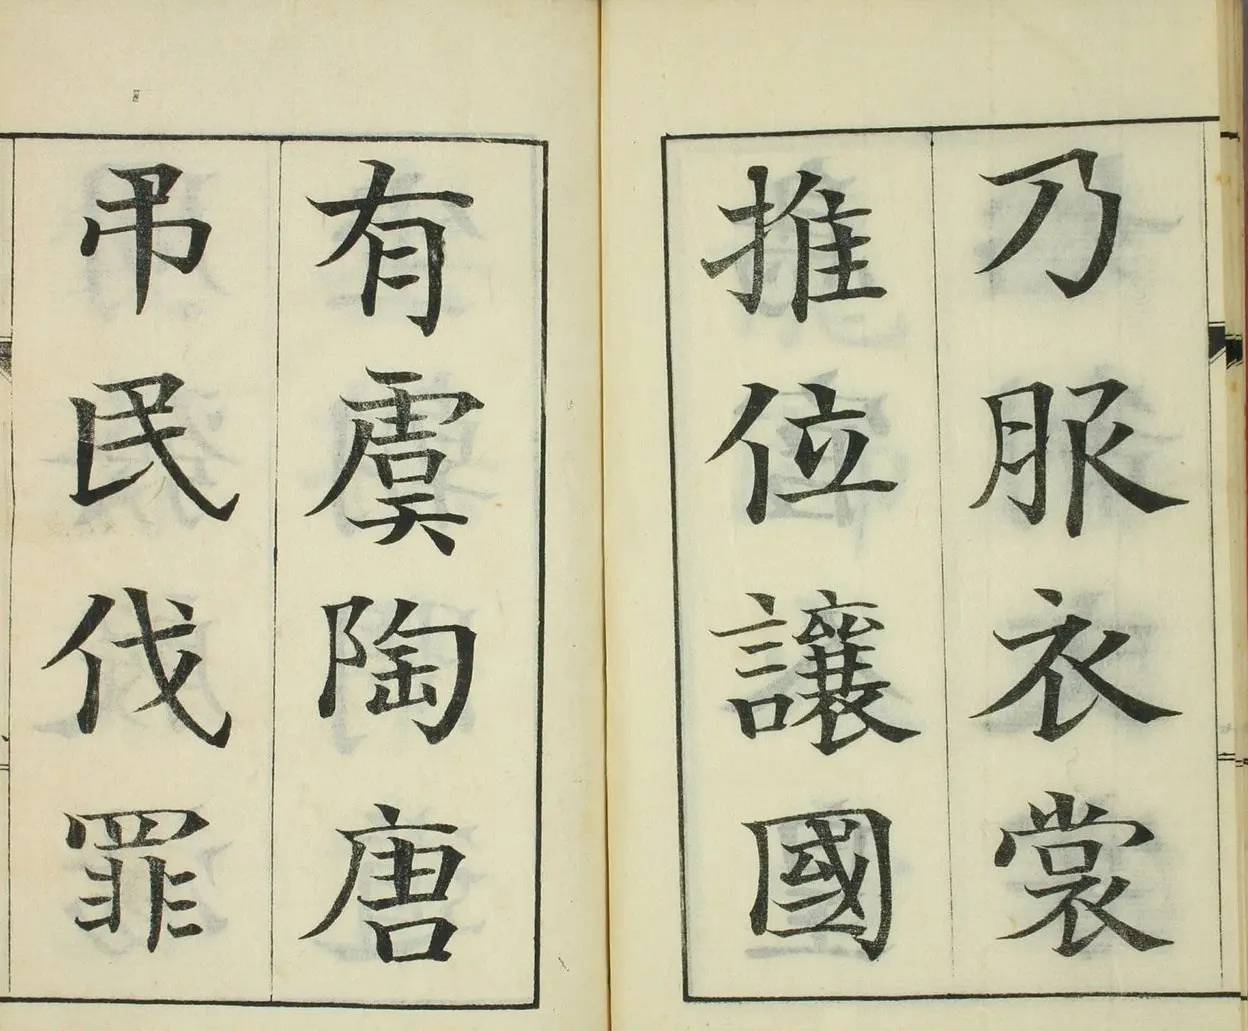 乃服衣裳
推位讓國
有虞陶唐
弔民伐罪